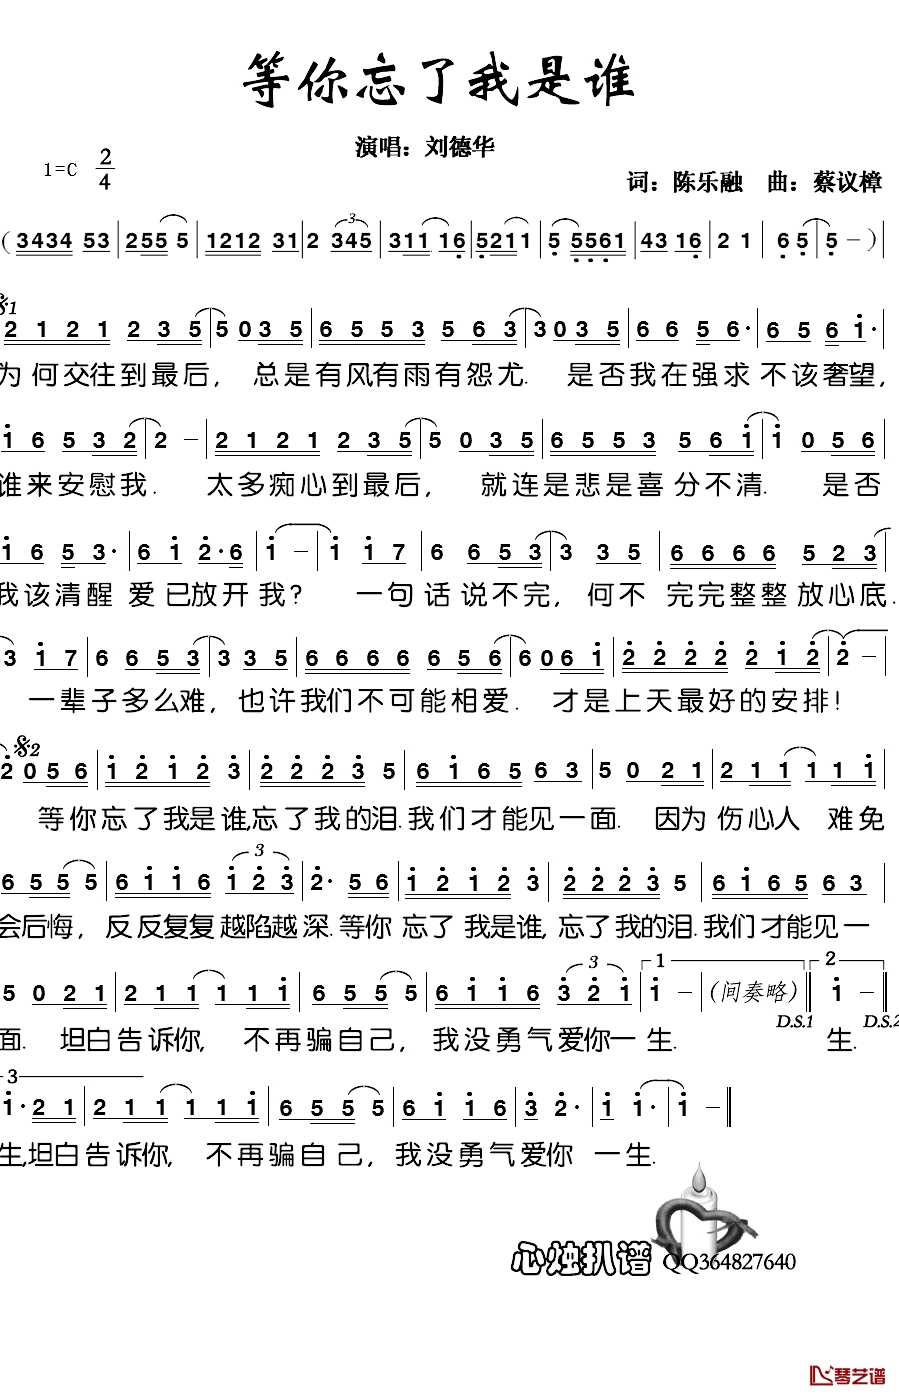 等你忘了我是谁
演唱：刘德华
1=C 2/4
词：陈乐融 曲：蔡议樟
（3434 53 | 255 5 | 1212 31 | 2 345 | 311 16 | 5211 | 5 5561 | 43 16 | 2 1 | 6 5 | 5 － ）
𝄋1
2 1 2 1 2 3 5 | 5 0 3 5 | 6 5 5 3 5 6 3 | 3 0 3 5 | 6 6 5 6· | 6 5 6 1·
为何交往到最后， 总是有风有雨有怨尤. 是否我在强求 不该奢望，
1 6 5 3 2 | 2 － | 2 1 2 1 2 3 5 | 5 0 3 5 | 6 5 5 3 5 6 1 | 1 0 5 6
谁来安慰我. 太多痴心到最后， 就连是悲是喜分不清. 是否
1 6 5 3· | 6 1 2·6 | 1 － | 1 1 7 | 6 6 5 3 | 3 3 5 | 6 6 6 6 5 2 3
我该清醒 爱已放开我？ 一句话说不完， 何不 完完整整放心底.
3 1 7 | 6 6 5 3 | 3 3 5 | 6 6 6 6 6 5 6 | 6 0 6 1 | 2 2 2 2 2 1 2 | 2 －
一辈子多么难， 也许我们不可能相爱. 才是上天最好的安排！
𝄋2
2 0 5 6 | 1 2 1 2 3 | 2 2 2 3 5 | 6 1 6 5 6 3 | 5 0 2 1 | 2 1 1 1 1 1
等你忘了我是谁,忘了我的泪.我们才能见一面. 因为伤心人 难免
6 5 5 5 | 6 1 1 6 1 2 3 | 2· 5 6 | 1 2 1 2 3 | 2 2 2 3 5 | 6 1 6 5 6 3
会后悔， 反反复复越陷越深.等你 忘了我是谁, 忘了我的泪.我们才能见一
5 0 2 1 | 2 1 1 1 1 1 | 6 5 5 5 | 6 1 1 6 3 2 1 | 1 1 － | （间奏略） D.S.1 2 1 － D.S.2
面. 坦白告诉你, 不再骗自己， 我没勇气爱你一生. 生.
3
1·2 1 | 2 1 1 1 1 1 | 6 5 5 5 | 6 1 1 6 | 3 2· | 1 1· | 1 －
生,坦白告诉你, 不再骗自己，我没勇气爱你 一生.
心烛扒谱 QQ364827640
琴艺谱